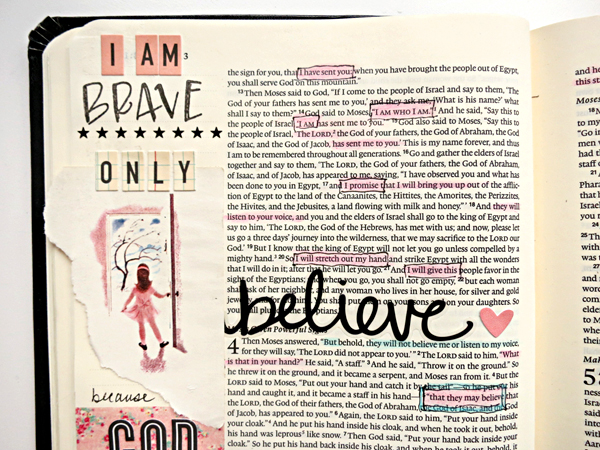 I AM
BRAVE
ONLY
because
GOD
3
the sign for you, that I have sent you: when you have brought the people out of Egypt,
you shall serve God on this mountain."
13 Then Moses said to God, "If I come to the people of Israel and say to them, 'The
God of your fathers has sent me to you,' and they ask me, 'What is his name?' what
shall I say to them?" 14 God said to Moses, "I AM WHO I AM." And he said, "Say this to
the people of Israel, 'I AM has sent me to you.'" 15 God also said to Moses, "Say this to
the people of Israel, 'The LORD, the God of your fathers, the God of Abraham, the God
of Isaac, and the God of Jacob, has sent me to you.' This is my name forever, and thus
I am to be remembered throughout all generations. 16 Go and gather the elders of Israel
together and say to them, 'The LORD, the God of your fathers, the God of Abraham,
of Isaac, and of Jacob, has appeared to me, saying, "I have observed you and what has
been done to you in Egypt, 17 and I promise that I will bring you up out of the afflic-
tion of Egypt to the land of the Canaanites, the Hittites, the Amorites, the Perizzites,
the Hivites, and the Jebusites, a land flowing with milk and honey."' 18 And they will
listen to your voice, and you and the elders of Israel shall go to the king of Egypt and
say to him, 'The LORD, the God of the Hebrews, has met with us; and now, please let
us go a three days' journey into the wilderness, that we may sacrifice to the LORD our
God.' 19 But I know that the king of Egypt will not let you go unless compelled by a
mighty hand. 20 So I will stretch out my hand and strike Egypt with all the wonders
that I will do in it; after that he will let you go. 21 And I will give this people favor in the
sight of the Egyptians; and when you go, you shall not go empty, 22 but each woman
shall ask of her neighbor, and any woman who lives in her house, for silver and gold
believe
4 Then Moses answered, "But behold, they will not believe me or listen to my voice,
for they will say, 'The LORD did not appear to you.'" 2 The LORD said to him, "What
is that in your hand?" He said, "A staff." 3 And he said, "Throw it on the ground." So
he threw it on the ground, and it became a serpent, and Moses ran from it. 4 But the
LORD said to Moses, "Put out your hand and catch it by the tail"—so he put out his
hand and caught it, and it became a staff in his hand— 5 "that they may believe that
the LORD, the God of their fathers, the God of Abraham, the God of Isaac, and the God
of Jacob, has appeared to you." 6 Again, the LORD said to him, "Put your hand inside
your cloak." And he put his hand inside his cloak, and when he took it out, behold,
his hand was leprous like snow. 7 Then God said, "Put your hand back inside your
cloak." So he put his hand back inside his cloak, and when he took it out, behold, it